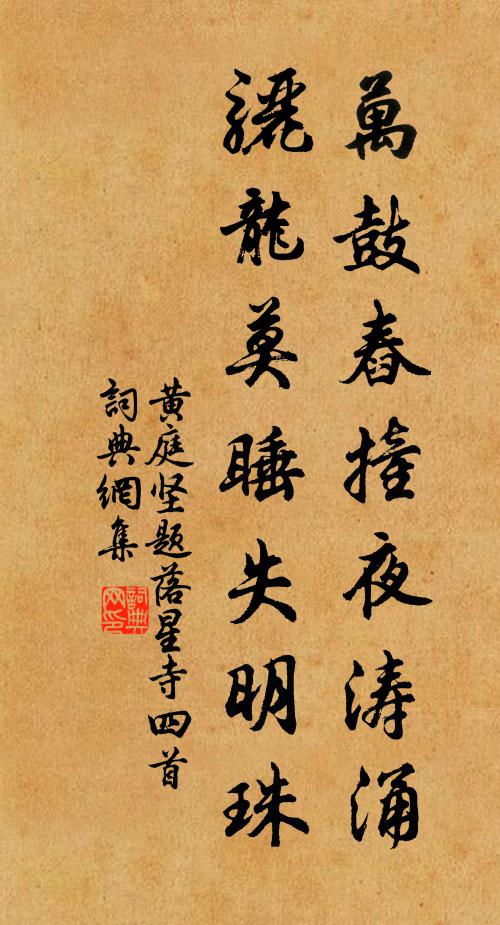 萬鼓舂撞夜涛涌
驪龍莫睡失明珠
黄庭坚題落星寺四首
詞典網集
詞典网印